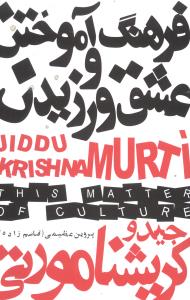 فرهنگ آموختن
و
عشق ورزیدن
JIDDU
KRISHNAMURTI
THIS MATTER
OF CULTURE
جیدو
پروین عظیمی (قاسم زاده)
کریشنامورتی